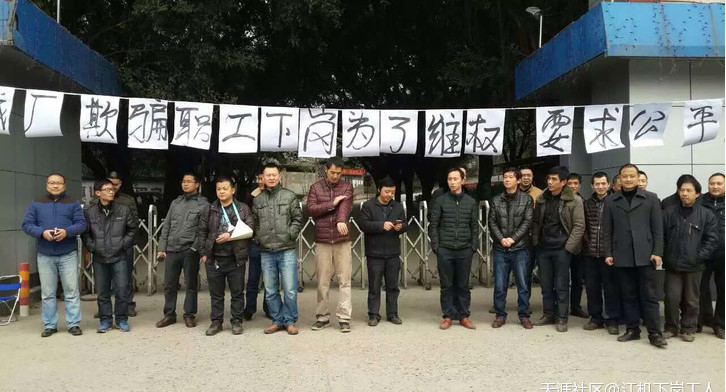 厂欺骗职工下岗为了维权 要求公平
天涯社区@江机下岗工人